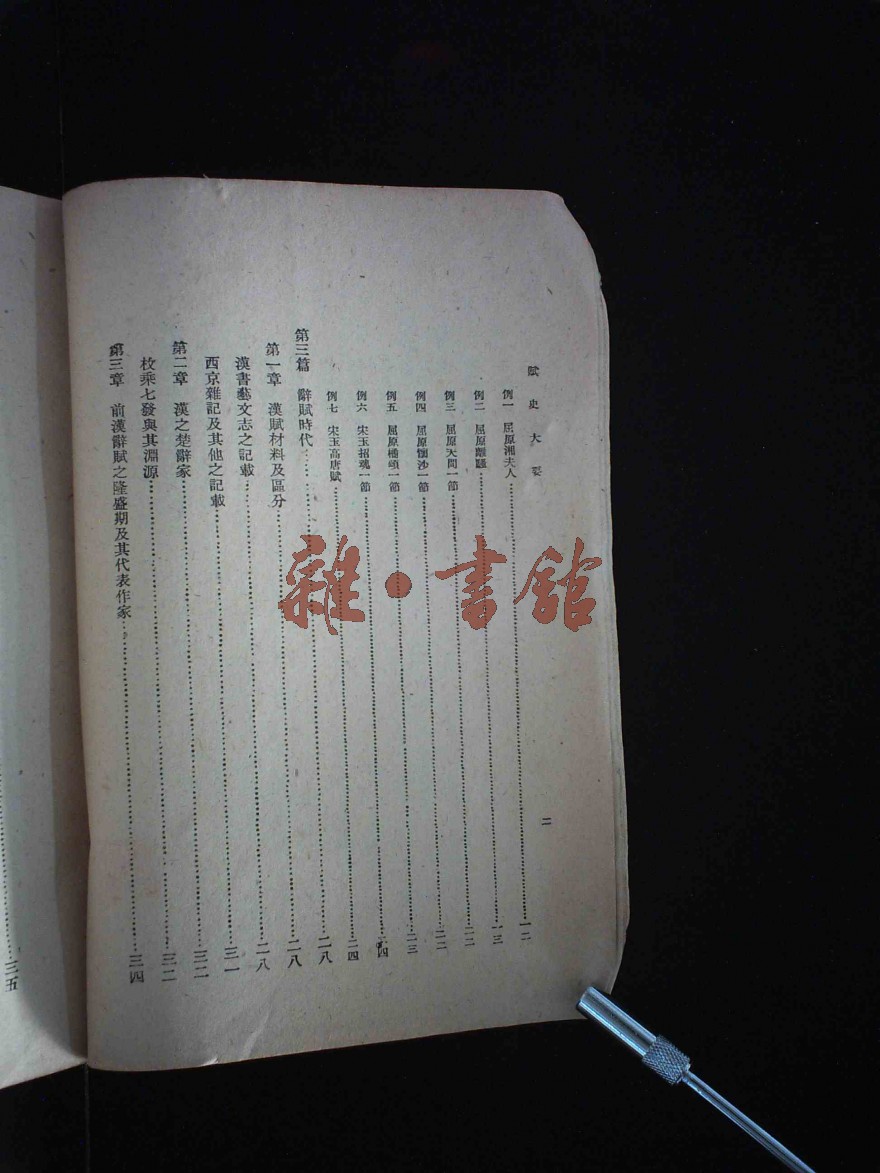 賦史大要
二
例一 屈原湘夫人……一二
例二 屈原離騷……一三
例三 屈原天問一節……二二
例四 屈原懷沙一節……二二
例五 屈原橘頌一節……二三
例六 宋玉招魂一節……二四
例七 宋玉高唐賦……二四
第三篇 辭賦時代……二八
第一章 漢賦材料及區分……二八
漢書藝文志之記載……二八
西京雜記及其他之記載……三一
第二章 漢之楚辭家……三二
枚乘七發與其淵源……三二
第三章 前漢辭賦之隆盛期及其代表作家……三四
三五
雜·書館